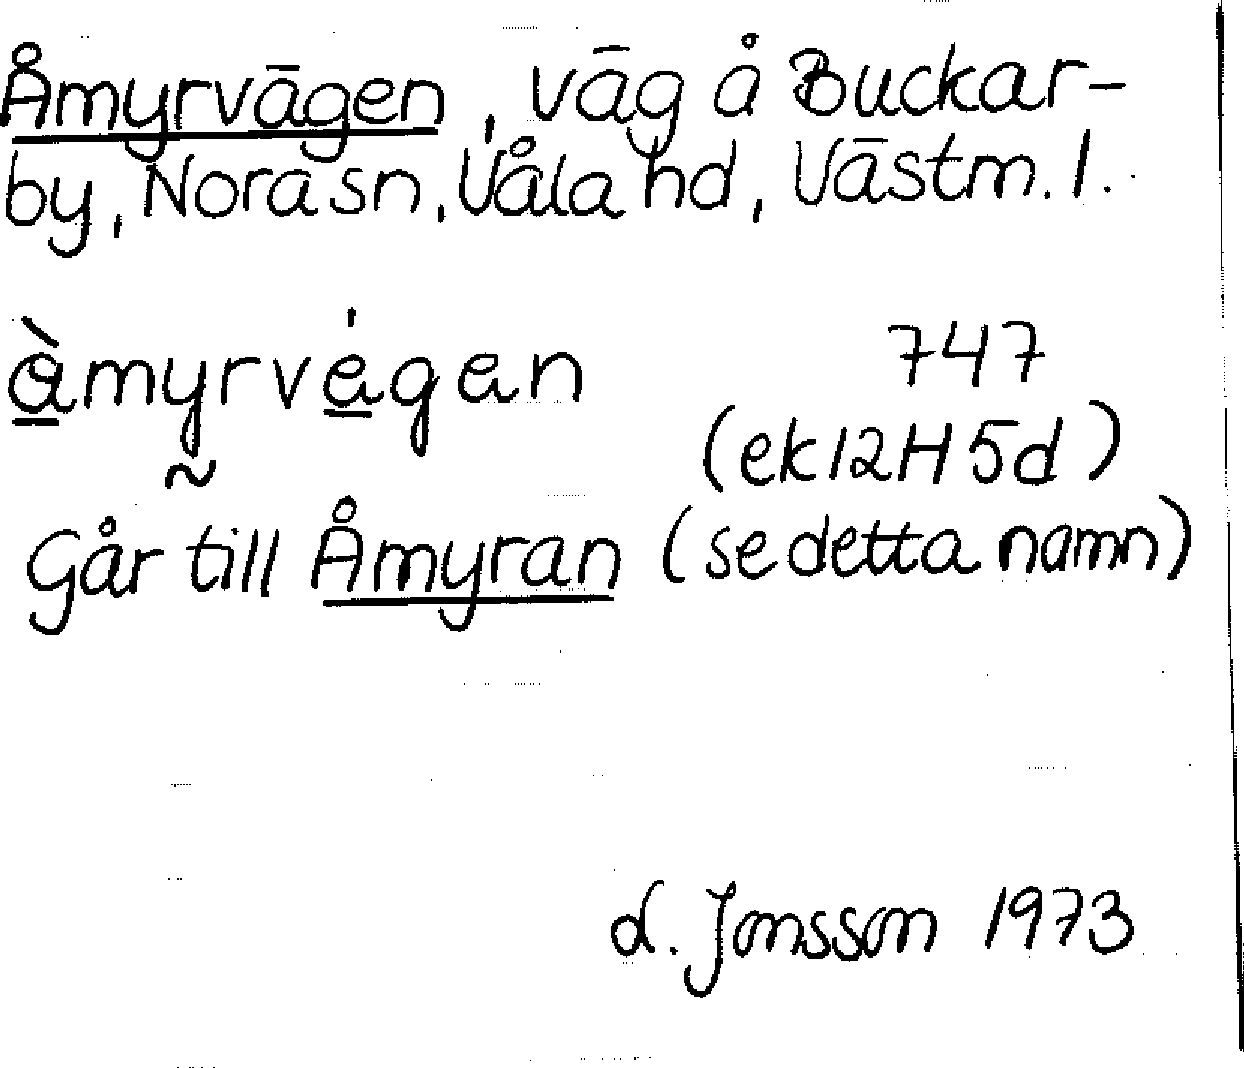 Åmyrvägen, väg å Buckar-
by, Nora sn, Våla hd, Västm. l.
åmyrvägen 747
(ek 12H 5d)
Går till Åmyran (se detta namn)
d. Jonsson 1973